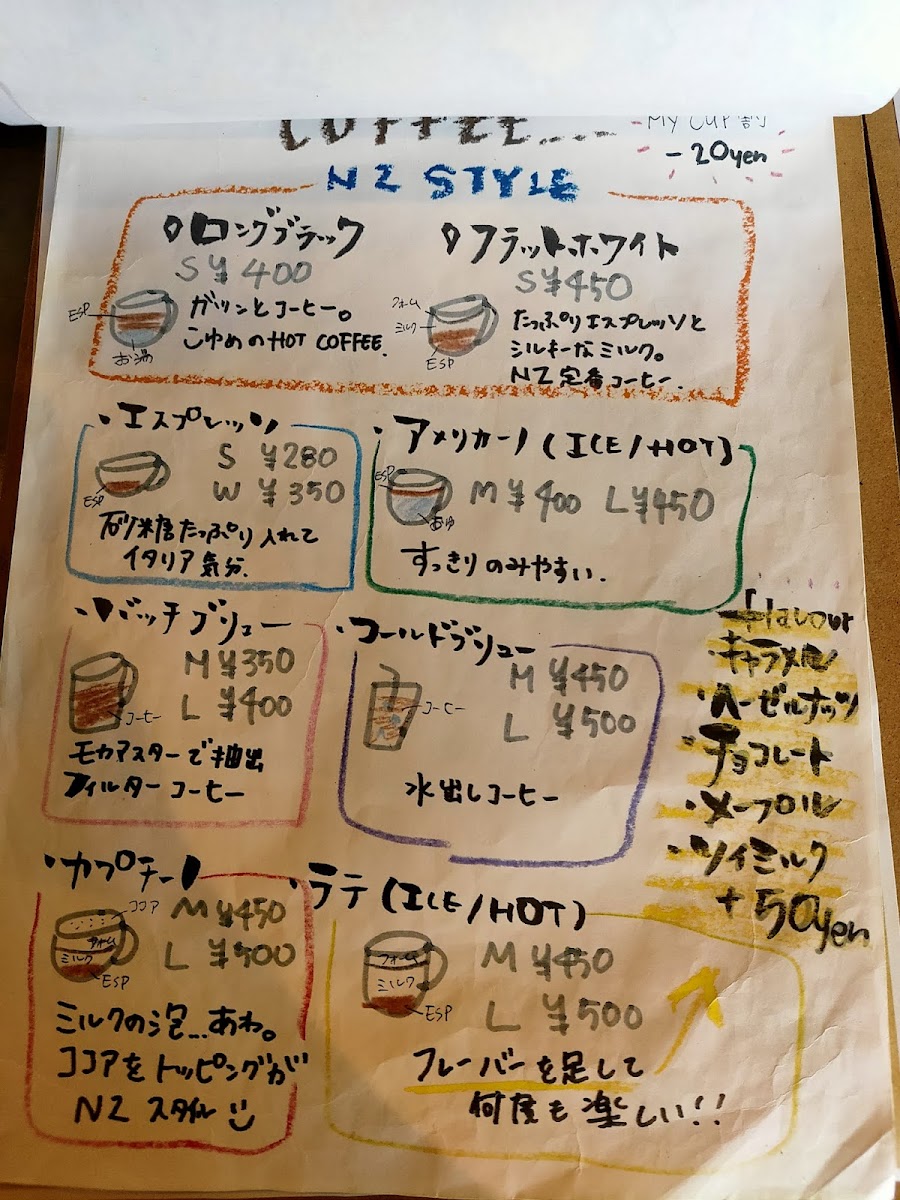 COFFEE....
MY CUP 割
-20yen
NZ STYLE
ロングブラック
S ¥400
ESP
お湯
ガツンとコーヒー。
こゆめのHOT COFFEE.
フラットホワイト
S ¥450
フォーム
ミルク
ESP
たっぷりエスプレッソと
シルキーなミルク。
NZ定番コーヒー.
・エスプレッソ
S ¥280
W ¥350
ESP
砂糖たっぷり入れて
イタリア気分.
・アメリカーノ(ICE/HOT)
ESP
おゆ
M ¥400 L ¥450
すっきりのみやすい.
・バッチブリュー
M ¥350
L ¥400
コーヒー
モカマスターで抽出
フィルターコーヒー
・コールドブリュー
M ¥450
L ¥500
コーヒー
水出しコーヒー
flavour
・キャラメル
・ヘーゼルナッツ
・チョコレート
・メープル
・ソイミルク
+50yen
・カプチーノ
ココア
フォーム
ミルク
ESP
M ¥450
L ¥500
ミルクの泡...あわ。
ココアをトッピングが
NZ スタイル
・ラテ(ICE/HOT)
フォーム
ミルク
ESP
M ¥450
L ¥500
フレーバーを足して
何度も楽しい!!